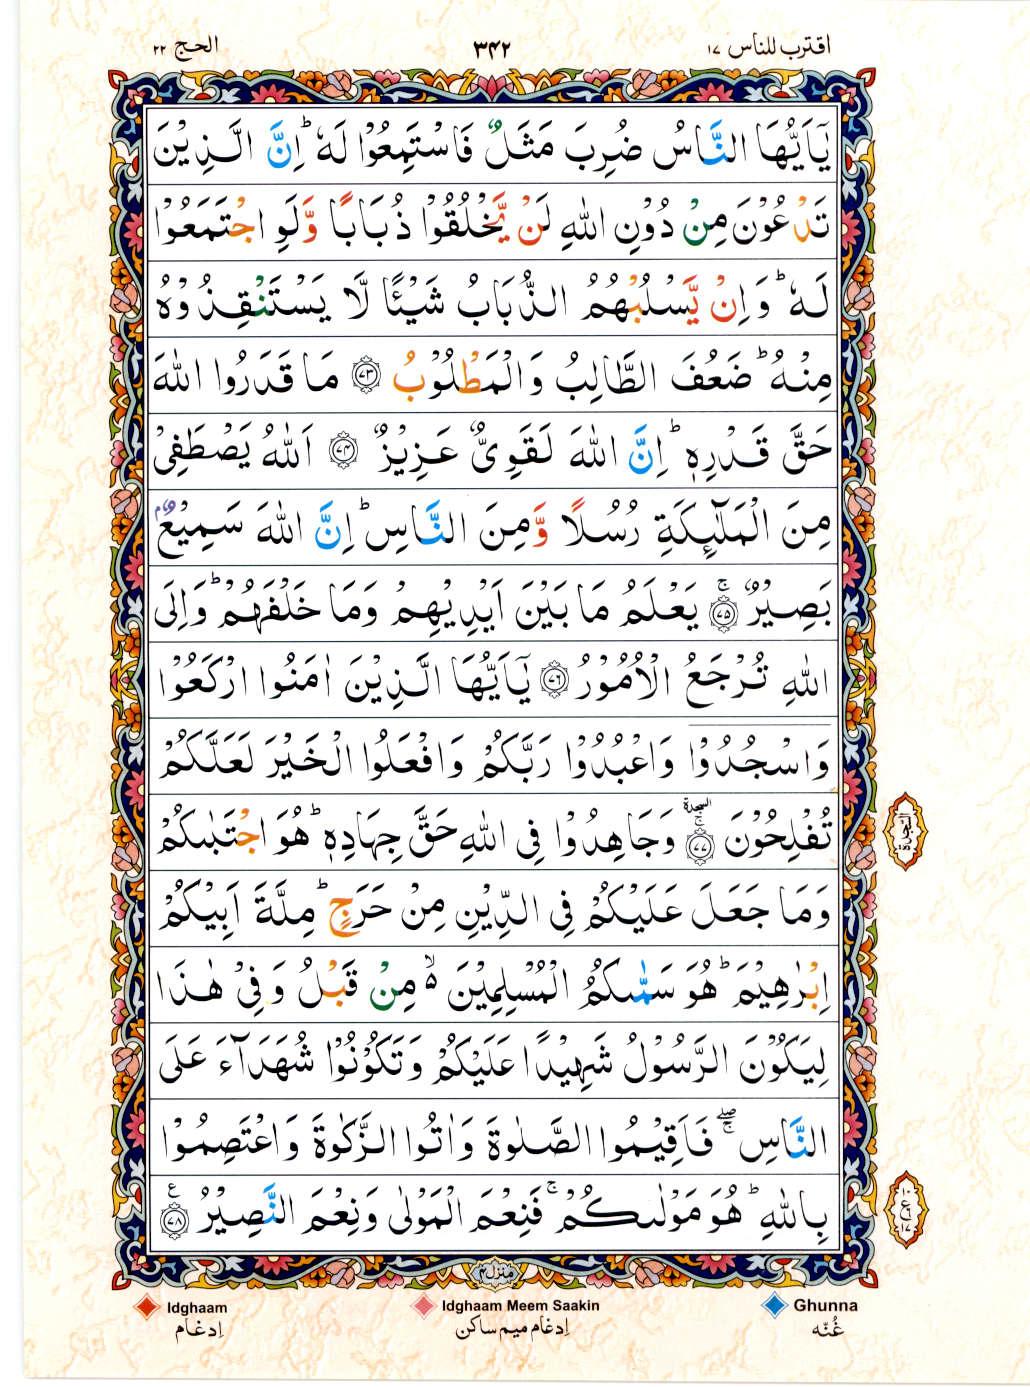 اقترب للناس ١٧
٣۴٢
الحج ٢٢
يٰۤاَيُّهَا النَّاسُ ضُرِبَ مَثَلٌ فَاسْتَمِعُوْا لَهٗ ؕ اِنَّ الَّذِيْنَ
تَدْعُوْنَ مِنْ دُوْنِ اللّٰهِ لَنْ يَّخْلُقُوْا ذُبَابًا وَّلَوِ اجْتَمَعُوْا
لَهٗ ؕ وَاِنْ يَّسْلُبْهُمُ الذُّبَابُ شَيْـًٔا لَّا يَسْتَنْقِذُوْهُ
مِنْهُ ؕ ضَعُفَ الطَّالِبُ وَالْمَطْلُوْبُ ﴿٧٣﴾ مَا قَدَرُوا اللّٰهَ
حَقَّ قَدْرِهٖ ؕ اِنَّ اللّٰهَ لَقَوِيٌّ عَزِيْزٌ ﴿٧۴﴾ اَللّٰهُ يَصْطَفِيْ
مِنَ الْمَلٰٓئِكَةِ رُسُلًا وَّمِنَ النَّاسِ ؕ اِنَّ اللّٰهَ سَمِيْعٌۢ
بَصِيْرٌ ۚ﴿٧٥﴾ يَعْلَمُ مَا بَيْنَ اَيْدِيْهِمْ وَمَا خَلْفَهُمْ ؕ وَاِلَى
اللّٰهِ تُرْجَعُ الْاُمُوْرُ ﴿٧٦﴾ يٰۤاَيُّهَا الَّذِيْنَ اٰمَنُوا ارْكَعُوْا
وَاسْجُدُوْا وَاعْبُدُوْا رَبَّكُمْ وَافْعَلُوا الْخَيْرَ لَعَلَّكُمْ
تُفْلِحُوْنَ ۚ﴿٧٧﴾ السجدة وَجَاهِدُوْا فِي اللّٰهِ حَقَّ جِهَادِهٖ ؕ هُوَ اجْتَبٰىكُمْ
السجدة
وَمَا جَعَلَ عَلَيْكُمْ فِي الدِّيْنِ مِنْ حَرَجٍ ؕ مِلَّةَ اَبِيْكُمْ
اِبْرٰهِيْمَ ؕ هُوَ سَمّٰىكُمُ الْمُسْلِمِيْنَ ۙ۬ مِنْ قَبْلُ وَفِيْ هٰذَا
لِيَكُوْنَ الرَّسُوْلُ شَهِيْدًا عَلَيْكُمْ وَتَكُوْنُوْا شُهَدَآءَ عَلَى
النَّاسِ ۖۚ فَاَقِيْمُوا الصَّلٰوةَ وَاٰتُوا الزَّكٰوةَ وَاعْتَصِمُوْا
بِاللّٰهِ ؕ هُوَ مَوْلٰىكُمْ ۚ فَنِعْمَ الْمَوْلٰى وَنِعْمَ النَّصِيْرُ ﴿٧٨﴾ ع
١٠ ع ١٧
منزل۴
Idghaam
Idghaam Meem Saakin
Ghunna
اِدغام
اِدغام میم ساکن
غُنّہ